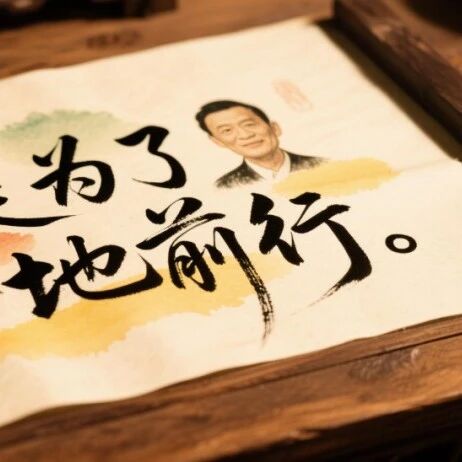 为了
地前行。